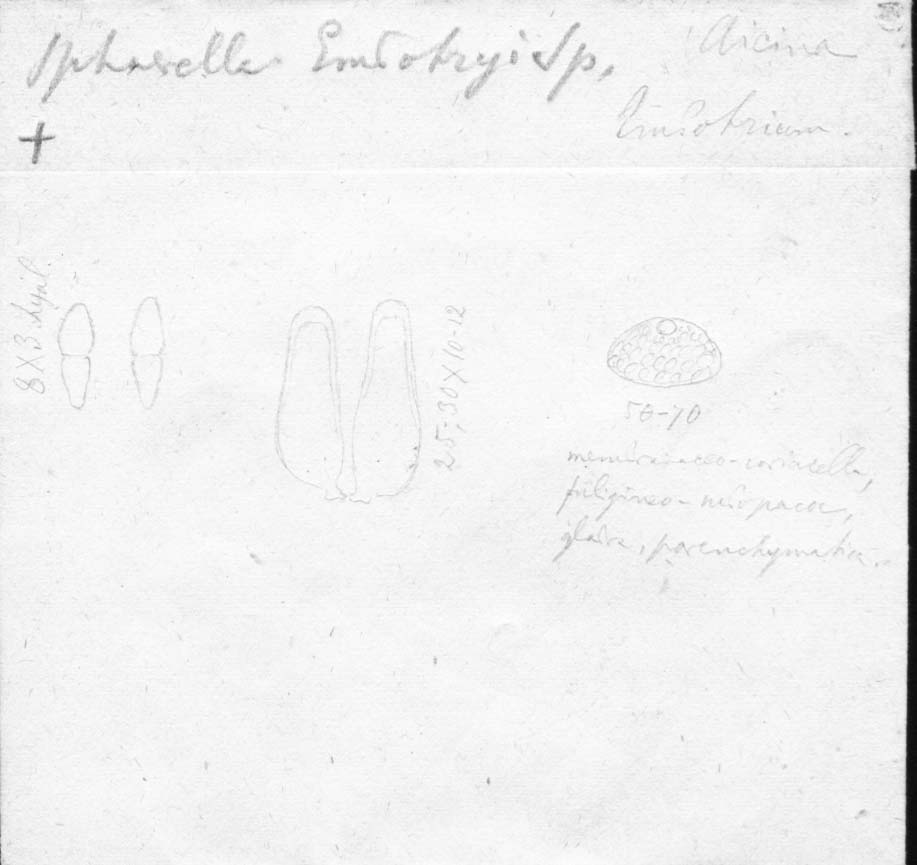 Sphaerella Embotryi Sp.
Aicina
Embotrium.
+
8X3 hyal.
25-30X10-12
50-70
membranaceo-coriacella,
fuligineo-subopacae,
glabra, parenchymatica.